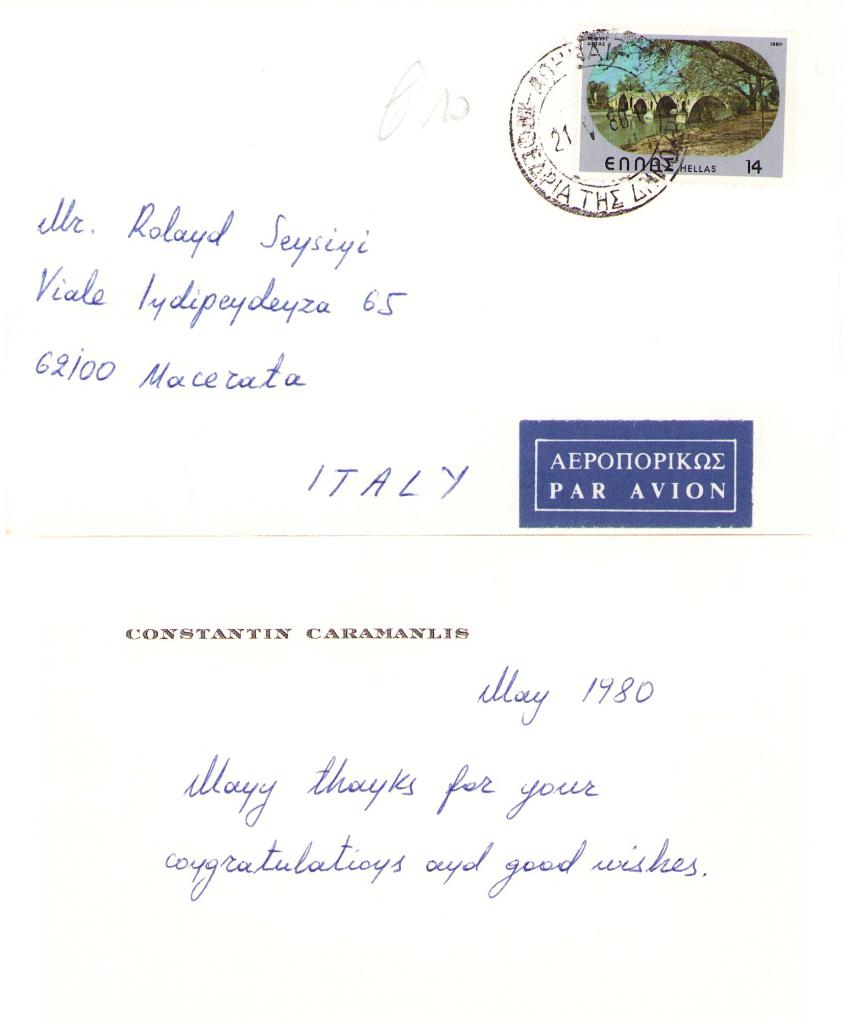 ΓΕΦΥΡΙ ΑΡΤΑΣ 1980
ΕΛΛΑΣ HELLAS 14
21 V 80
Mr. Roland Sensini
Viale Indipendenza 65
62100 Macerata
ITALY
ΑΕΡΟΠΟΡΙΚΩΣ
PAR AVION
CONSTANTIN CARAMANLIS
May 1980
Many thanks for your
congratulations and good wishes.